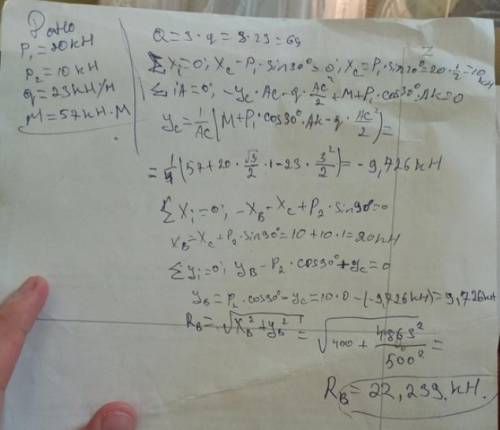 Дано
P₁=20кН
P₂=10кН
q=23кН/м
M=57кН·м
Q=3·q=3·23=69
2
∑Xi=0; Xc-P₁·sin30°=0; Xc=P₁·sin30°=20·1/2=10кН
∑iA=0; -Yc·AC-q·AC²/2+M+P₁·cos30°·AK=0
Yc=1/AC(M+P₁·cos30°·AK-q·AC²/2)=
=1/4(57+20·√3/2·1-23·3²/2)=-9,726кН
∑Xi=0; -XB-Xc+P₂·sin90°=0
XB=-Xc+P₂·sin90°=10+10·1=20кН
∑Yi=0; YB-P₂·cos90°+Yc=0
YB=P₂·cos90°-Yc=10·0-(-9,726кН)=9,726кН
RB=√XB²+YB²=√400+4863²/500²=
RB=22,239кН.